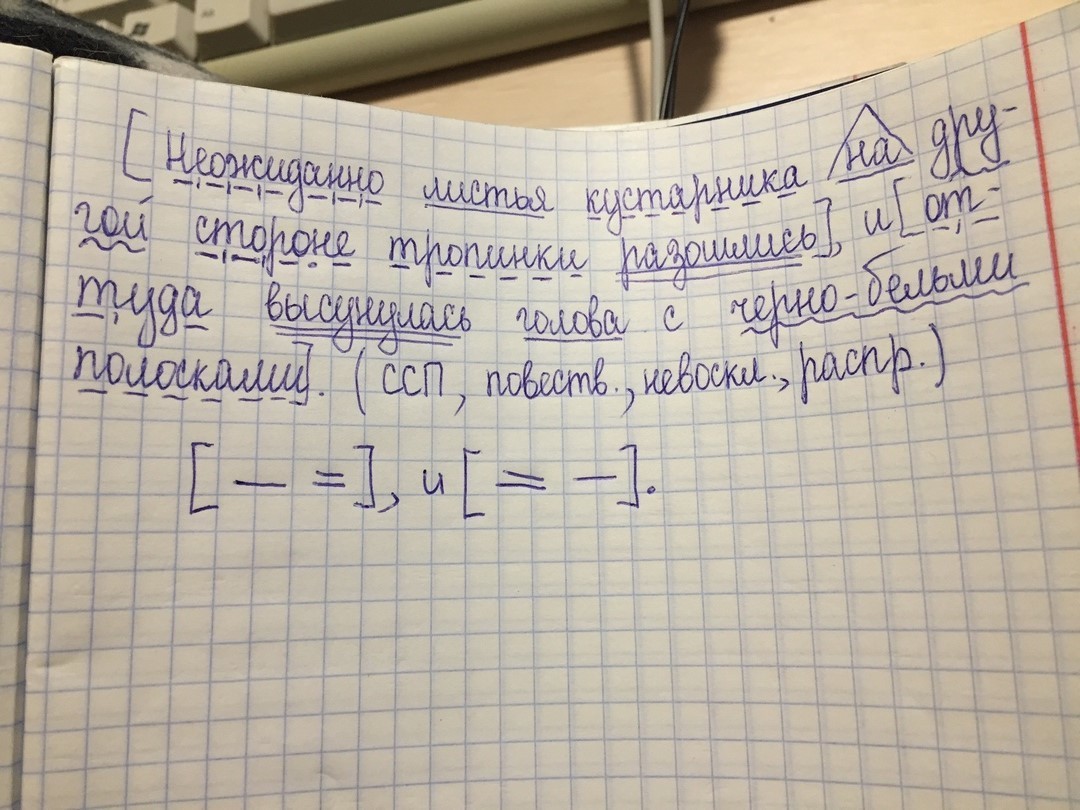 [Неожиданно листья кустарника на дру-
гой стороне тропинки разошлись], и [от-
туда высунулась голова с черно-белыми
полосками]. (ССП, повеств., невоскл., распр.)
[— =], и [= —].